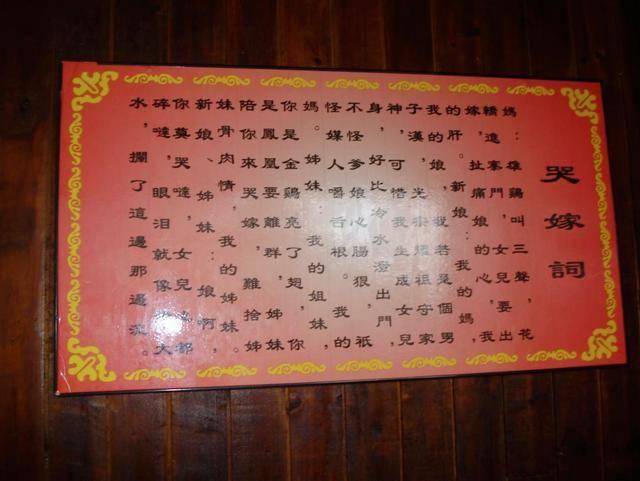 哭嫁詞
媽：雄鷄叫三聲，花
轎進寨門，女兒要出
嫁，扯痛娘的心，我
的肝。新娘：我的媽
我的娘，我若是個男
子漢，光宗耀祖守家
神，可惜我生成女兒
身，好比冷水潑出門，
不怪爹娘心腸狠，衹
怪媒人嚼舌根。我的
媽。姊妹：我的姐妹
你是金鷄亮了翅，你
是鳳凰要離群，姊妹
陪你來哭嫁，難捨姊
妹骨肉情，我的姊妹。
新娘、姊妹：娘啊，
你莫哭噠，女兒心都
碎噠，眼泪就像大
水，攔了這邊那邊流。